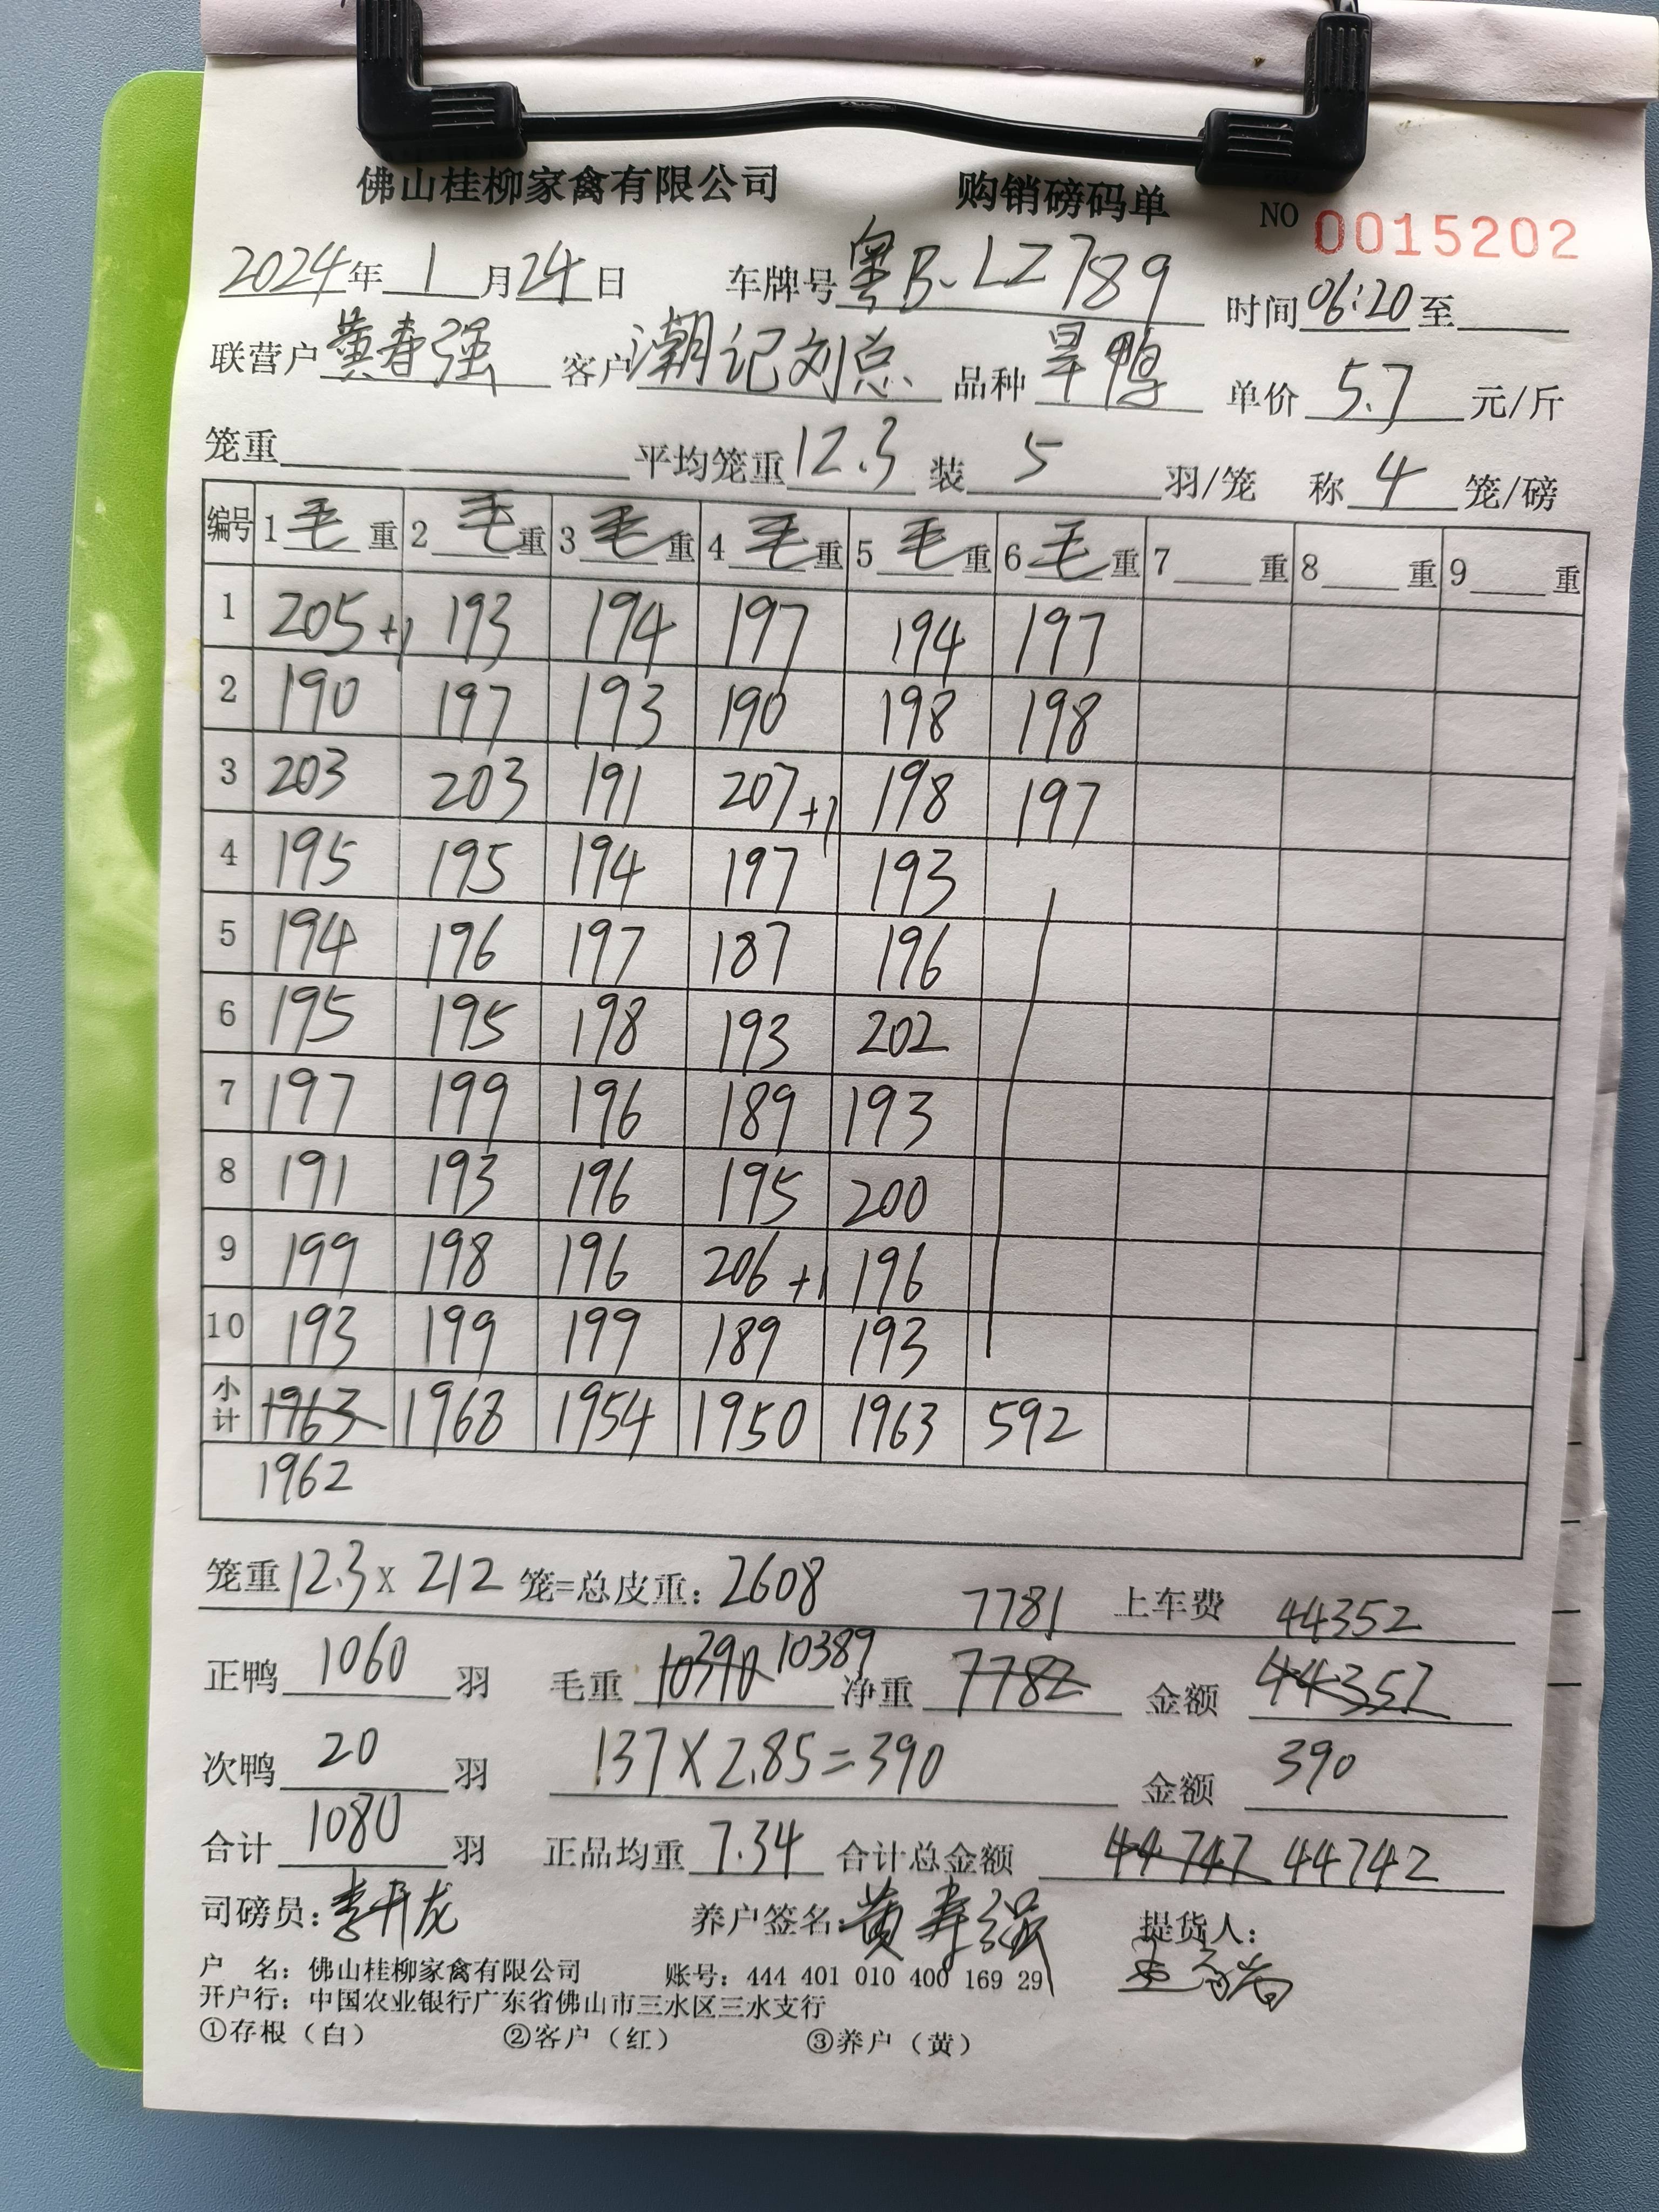 佛山桂柳家禽有限公司 购销磅码单 NO 0015202
2024年 1 月 24 日 车牌号 粤B-LZ789 时间 06:20 至
联营户 黄春强 客户 潮记刘总 品种 旱鸭 单价 5.7 元/斤
笼重 平均笼重 12.3 装 5 羽/笼 称 4 笼/磅
编号 1 毛 重 2 毛 重 3 毛 重 4 毛 重 5 毛 重 6 毛 重 7 重 8 重 9 重
1 205+1 193 194 197 194 197
2 190 197 193 190 198 198
3 203 203 191 207+1 198 197
4 195 195 194 197 193
5 194 196 197 187 196
6 195 195 198 193 202
7 197 199 196 189 193
8 191 193 196 195 200
9 199 198 196 206+1 196
10 193 199 199 189 193
小计 1963 1968 1954 1950 1963 592
1962
笼重 12.3 x 212 笼=总皮重: 2608 7781 上车费 44352
正鸭 1060 羽 毛重 10390 10389 净重 7782 金额 44357
次鸭 20 羽 137×2.85=390 金额 390
合计 1080 羽 正品均重 7.34 合计总金额 44747 44742
司磅员: 养户签名: 提货人:
户 名: 佛山桂柳家禽有限公司 账号: 444 401 010 400 169 29
开户行: 中国农业银行广东省佛山市三水区三水支行
①存根（白） ②客户（红） ③养户（黄）